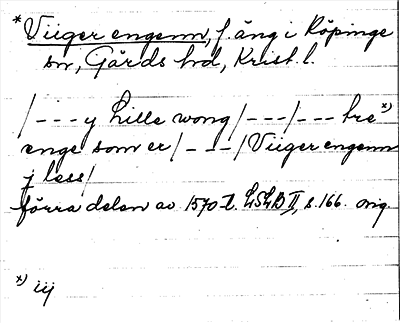 * Viiger engenn, f. äng i Köpinge
sn, Gärds hd, Krist. l.
/---y Lille wong /---/--- tre x)
enge som er /---/ Viiger engenn
j less /
förra delen av 1570-t. LSLB II, s. 166. orig
x) iij